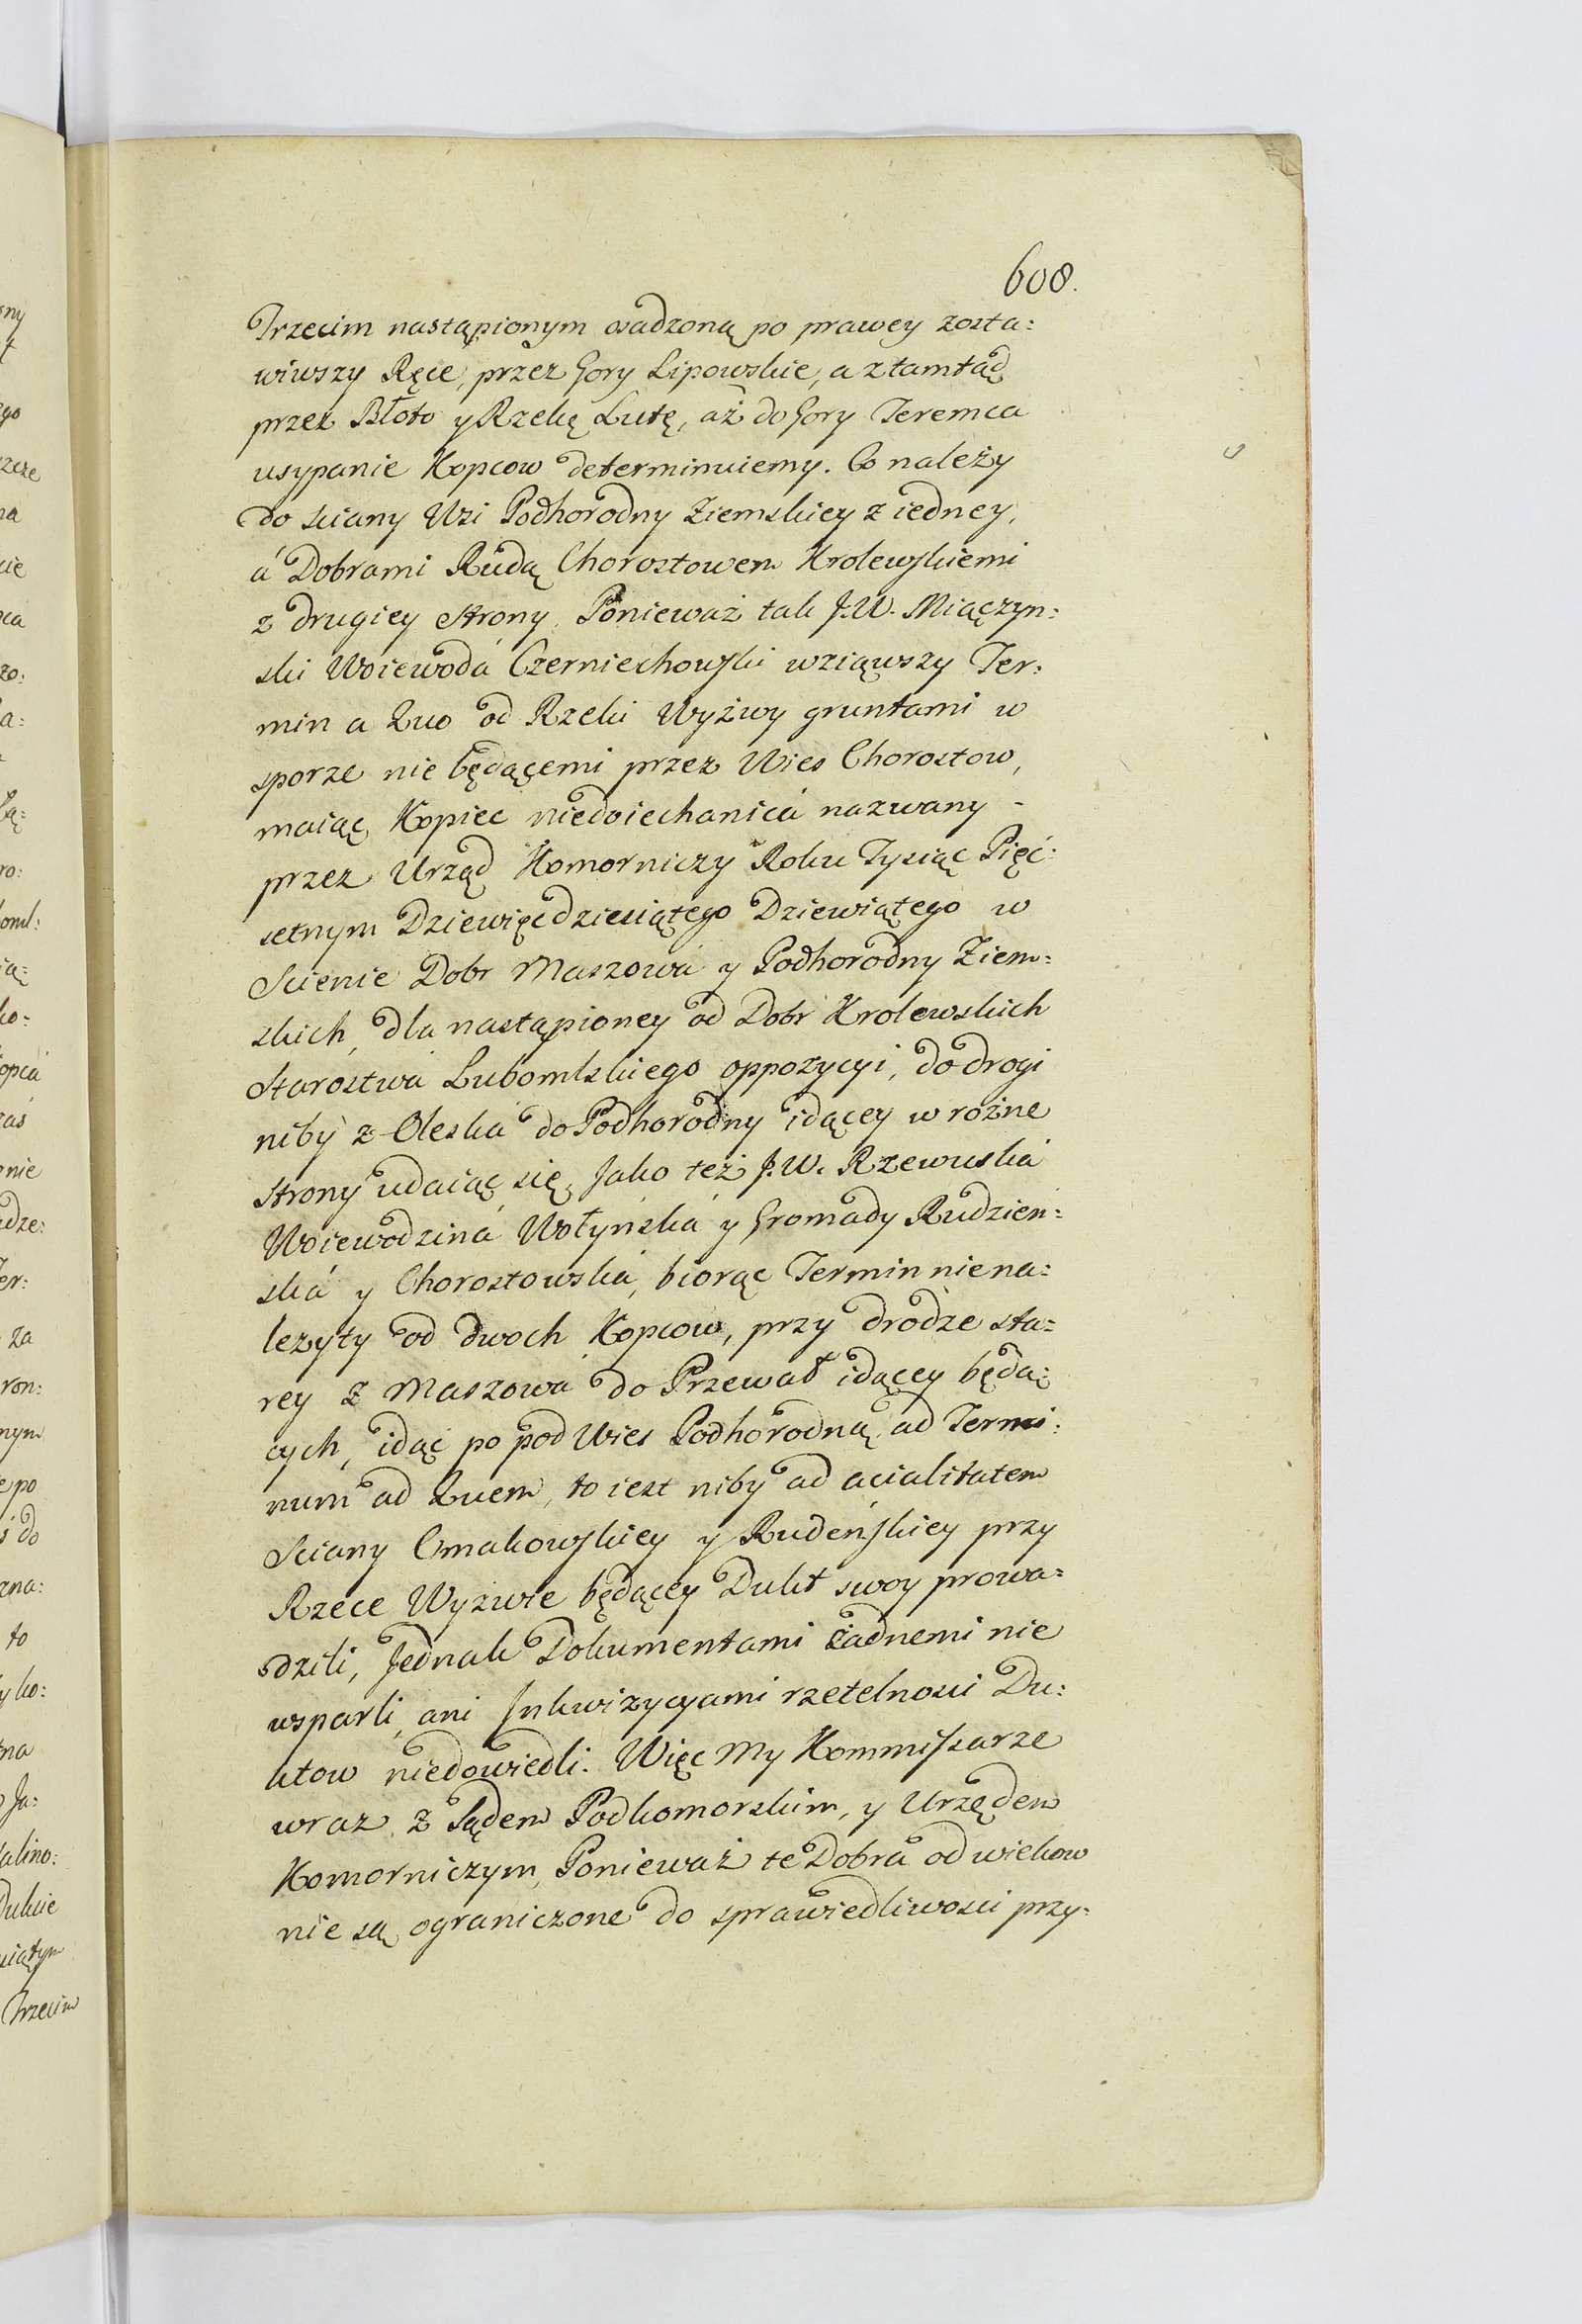 608.
Trzecim nastąpionym osadzoną po prawey zosta:
wiwszy Ręce, przez Gory Lipowskie, a ztamtąd
przez Błoto y Rzekę Lutę, aż do Gory Teremca
usypanie Kopcow determinuiemy. Co należy
do sciany Wsi Podhorodny Ziemskiey z iedney,
á Dobrami Rudą Chorostowem Krolewskiemi
z drugiey strony. Ponieważ tak J.W. Miączyn:
ski Woiewodá Czerniechowski wziąwszy Ter:
min a quo od Rzeki Wyżwy gruntami w
sporze nie będącemi przez Wies Chorostow,
maiąc Kopiec niedoiechanicá nazwany -
przez Urząd Komorniczy Roku Tysiąc Pięć:
setnym Dziewięcdziesiątego Dziewiątego w
Scienie Dobr Maszowá y Podhorodny Ziem:
skich, dla nastąpioney od Dobr Krolewskich
Starostwá Lubomlskiego oppozycyi, do drogi
niby z Oleská do Podhorodny idącey w rożne
strony udaiąc się, Jako też J.W. Rzewuská
Woiewodziná Wołyńská y Gromady Rudzien:
ská y Chorostowská, biorąc Termin niena:
lezyty od dwoch Kopcow, przy drodze sta:
rey z Maszowá do Przewał idącey będą:
cych, idąc po pod Wies Podhorodną ad Termi:
num ad quem, to iest niby ad acialitatem
Sciany Omakowskiey y Rudeńskiey przy
Rzece Wyzwie będącey Dukt swoy prowa:
dzili, Jednak Dokumentami żadnemi nie
wsparli, ani Inkwizycyami rzetelnosci Du:
ktow niedowiedli. Więc My Kommissarze
wraz z Sądem Podkomorskim, y Urzędem
Komorniczym, Ponieważ te Dobrá od wiekow
nie są ograniczone do sprawiedliwosci przy: